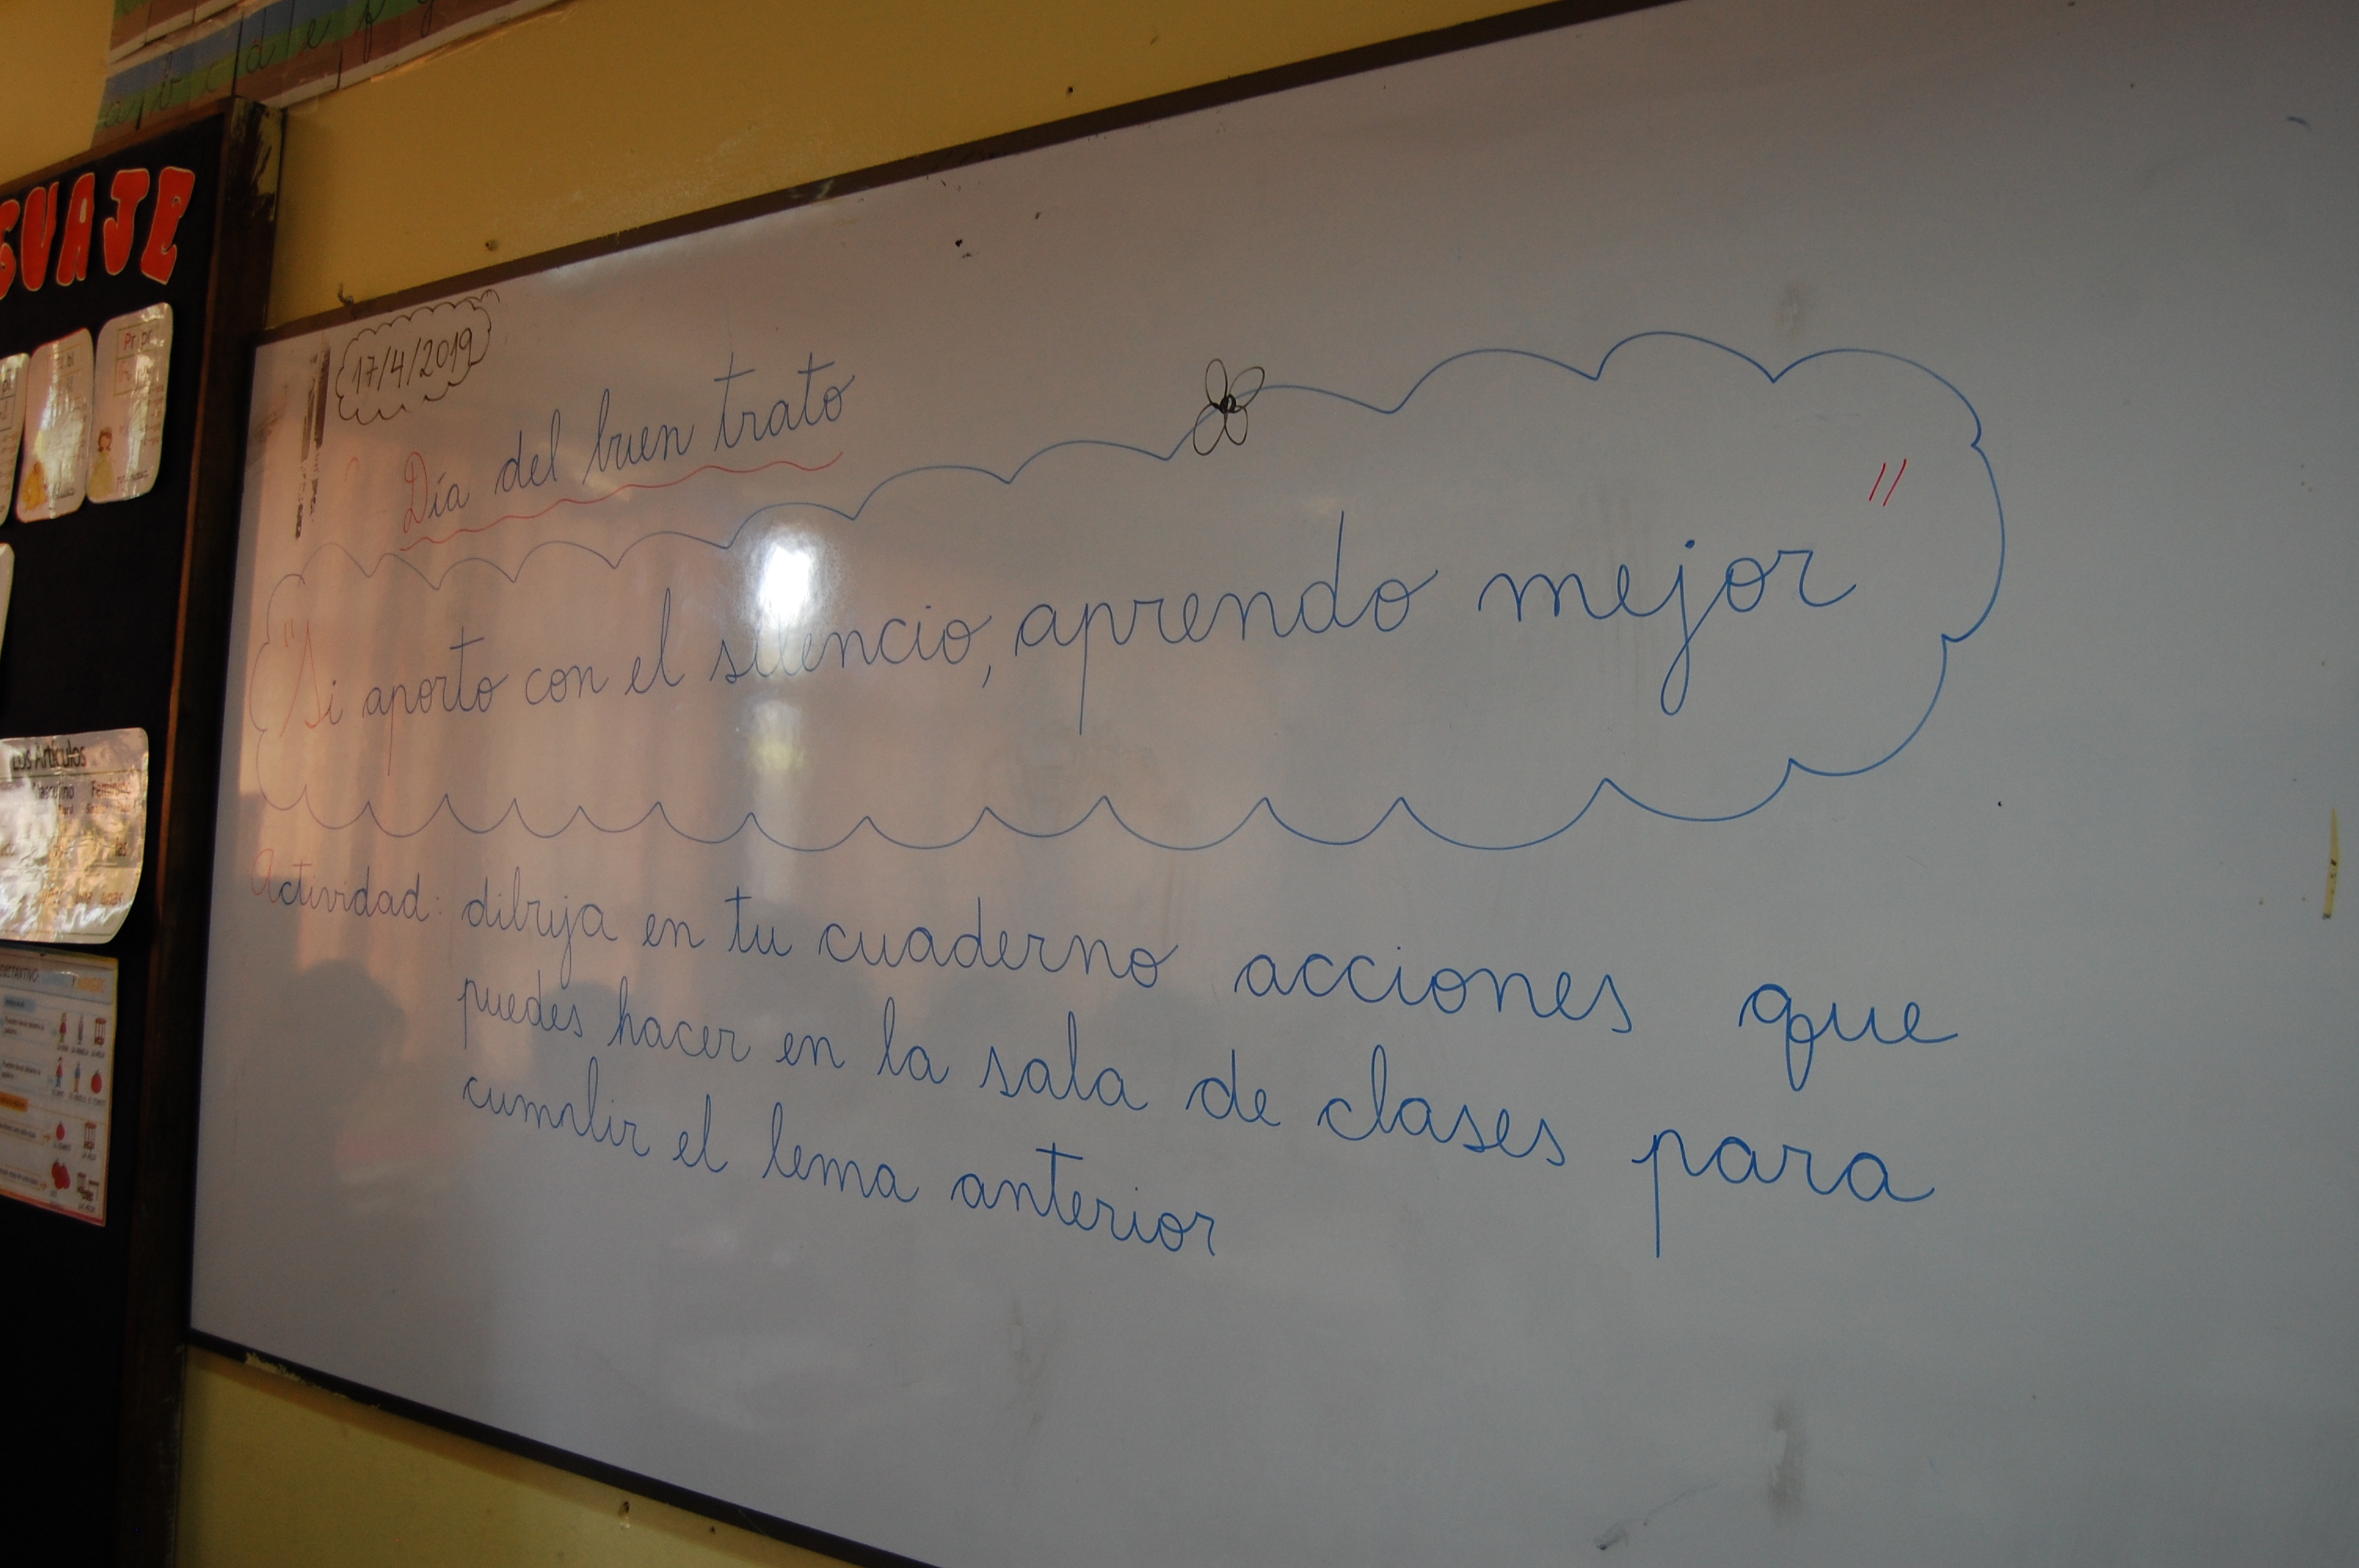 a b c d e f g
GUAJE
Pr pr
Los Artículos
17/4/2019
Día del buen trato
"Si aporto con el silencio, aprendo mejor"
Actividad: dibuja en tu cuaderno acciones que
puedes hacer en la sala de clases para
cumplir el lema anterior